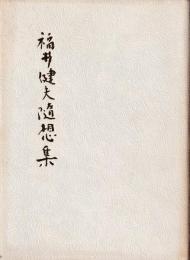 福井健夫随想集